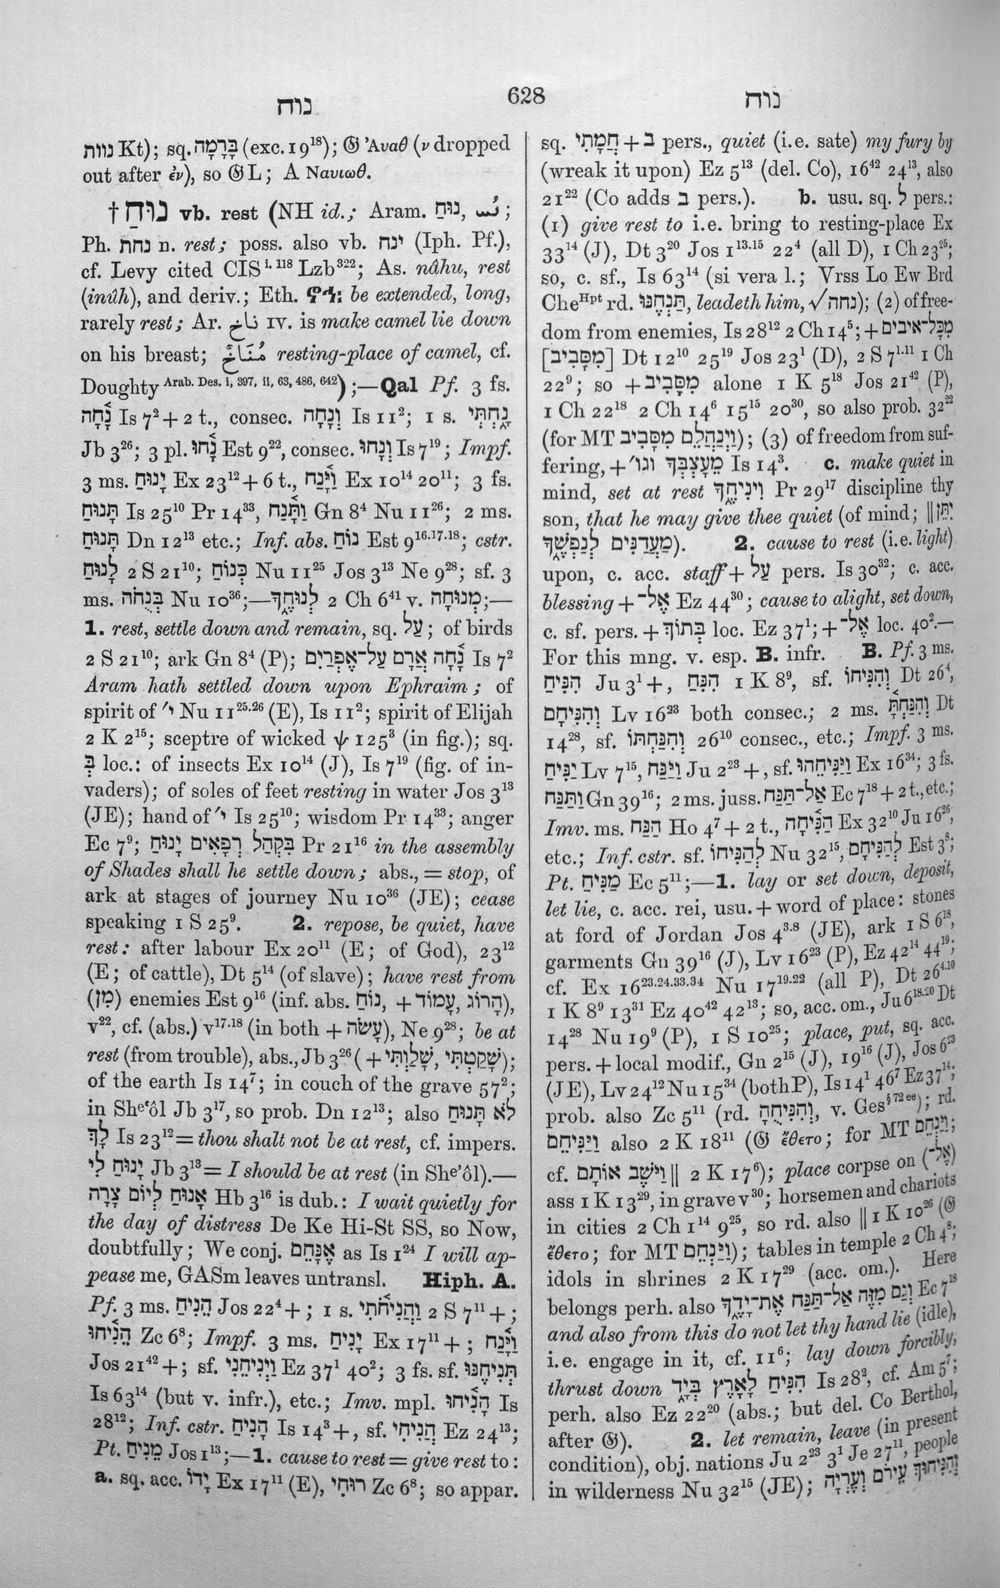 נוח
628
נוח
נוות Kt); sq. בָּרָמָה (exc. 19¹⁸); 𝔊 ’Αυαθ (ν dropped
out after ἐν), so 𝔊L; A Ναυιωθ.
† נוּחַ vb. rest (NH id.; Aram. נוּחַ, ;
Ph. נחת n. rest; poss. also vb. ינח (Iph. Pf.),
cf. Levy cited CIS i. 118 Lzb³²²; As. nâḫu, rest
(inûḫ), and deriv.; Eth. be extended, long,
rarely rest; Ar. أناخ IV. is make camel lie down
on his breast; مُنَاخٌ resting-place of camel, cf.
Doughty Arab. Des. i, 397, ii, 63, 486, 642);—Qal Pf. 3 fs.
נָחָה Is 7²+2 t., consec. וְנָחָה Is 11²; 1 s. נָחְתִּי
Jb 3²⁶; 3 pl. נָחוּ Est 9²², consec. וְנָחוּ Is 7¹⁹; Impf.
3 ms. יָנוּחַ Ex 23¹²+6 t., וַיָּנַח Ex 10¹⁴ 20¹¹; 3 fs.
תָּנוּחַ Is 25¹⁰ Pr 14³³, וַתָּנַח Gn 8⁴ Nu 11²⁶; 2 ms.
תָּנוּחַ Dn 12¹³ etc.; Inf. abs. נוֹחַ Est 9¹⁶·¹⁷·¹⁸; cstr.
לָנוּחַ 2 S 21¹⁰; כְּנוֹחַ Nu 11²⁵ Jos 3¹³ Ne 9²⁸; sf. 3
ms. בְּנֻחֹה Nu 10³⁶;—לְנוּחֶךָ 2 Ch 6⁴¹ v. מְנוּחָה;—
1. rest, settle down and remain, sq. עַל; of birds
2 S 21¹⁰; ark Gn 8⁴ (P); נָחָה אֲרָם עַל־אֶפְרַיִם Is 7²
Aram hath settled down upon Ephraim; of
spirit of ׳י Nu 11²⁵·²⁶ (E), Is 11²; spirit of Elijah
2 K 2¹⁵; sceptre of wicked ψ 125³ (in fig.); sq.
בְּ loc.: of insects Ex 10¹⁴ (J), Is 7¹⁹ (fig. of in-
vaders); of soles of feet resting in water Jos 3¹³
(JE); hand of ׳י Is 25¹⁰; wisdom Pr 14³³; anger
Ec 7⁹; בִּקְהַל רְפָאִים יָנוּחַ Pr 21¹⁶ in the assembly
of Shades shall he settle down; abs., = stop, of
ark at stages of journey Nu 10³⁶ (JE); cease
speaking 1 S 25⁹. 2. repose, be quiet, have
rest: after labour Ex 20¹¹ (E; of God), 23¹²
(E; of cattle), Dt 5¹⁴ (of slave); have rest from
(מִן) enemies Est 9¹⁶ (inf. abs. נוֹחַ, + הָרוֹג, עָמוֹד),
v²², cf. (abs.) v¹⁷·¹⁸ (in both + עָשֹׂה), Ne 9²⁸; be at
rest (from trouble), abs., Jb 3²⁶ (+ שָׁלַוְתִּי, שָׁקַטְתִּי);
of the earth Is 14⁷; in couch of the grave 57²;
in Sheʾôl Jb 3¹⁷, so prob. Dn 12¹³; also לֹא תָנוּחַ
לָךְ Is 23¹² = thou shalt not be at rest, cf. impers.
יָנוּחַ לִי Jb 3¹³ = I should be at rest (in Sheʾôl).—
אָנוּחַ לְיוֹם צָרָה Hb 3¹⁶ is dub.: I wait quietly for
the day of distress De Ke Hi-St SS, so Now,
doubtfully; We conj. אֶנָּחֵם as Is 1²⁴ I will ap-
pease me, GASm leaves untransl. Hiph. A.
Pf. 3 ms. הֵנִיחַ Jos 22⁴+; 1 s. וַהֲנִיחֹתִי 2 S 7¹¹+;
הֵנִיחוּ Zc 6⁸; Impf. 3 ms. יָנִיחַ Ex 17¹¹+; וַיָּנַח
Jos 21⁴²+; sf. וַיְנִיחֵנִי Ez 37¹ 40²; 3 fs. sf. תְּנִיחֶנּוּ
Is 63¹⁴ (but v. infr.), etc.; Imv. mpl. הָנִיחוּ Is
28¹²; Inf. cstr. הָנִיחַ Is 14³+, sf. הֲנִיחִי Ez 24¹³;
Pt. מֵנִיחַ Jos 1¹³;—1. cause to rest = give rest to:
a. sq. acc. יָדוֹ Ex 17¹¹ (E), רוּחִי Zc 6⁸; so appar.
sq. חֲמָתִי + ב pers., quiet (i.e. sate) my fury by
(wreak it upon) Ez 5¹³ (del. Co), 16⁴² 24¹³, also
21²² (Co adds ב pers.). b. usu. sq. לְ pers.:
(1) give rest to i.e. bring to resting-place Ex
33¹⁴ (J), Dt 3²⁰ Jos 1¹³·¹⁵ 22⁴ (all D), 1 Ch 23²⁵;
so, c. sf., Is 63¹⁴ (si vera l.; Vrss Lo Ew Brd
Che Hpt rd. תַּנְחֶנּוּ, leadeth him, √נחה); (2) of free-
dom from enemies, Is 28¹² 2 Ch 14⁵; + מִכָּל־איבים
[מִסָּבִיב] Dt 12¹⁰ 25¹⁹ Jos 23¹ (D), 2 S 7¹·¹¹ 1 Ch
22⁹; so + מִסָּבִיב alone 1 K 5¹⁸ Jos 21⁴² (P),
1 Ch 22¹⁸ 2 Ch 14⁶ 15¹⁵ 20³⁰, so also prob. 32²²
(for MT וַיְנַהֲלֵם מִסָּבִיב); (3) of freedom from suf-
fering, + מֵעָצְבְּךָ וגו׳ Is 14³. c. make quiet in
mind, set at rest וִינִיחֶךָ Pr 29¹⁷ discipline thy
son, that he may give thee quiet (of mind; ‖ יִתֵּן
מַעֲדַנִּים לְנַפְשֶׁךָ). 2. cause to rest (i.e. light)
upon, c. acc. staff + עַל pers. Is 30³²; c. acc.
blessing + אֶל־ Ez 44³⁰; cause to alight, set down,
c. sf. pers. + בְּתוֹךְ loc. Ez 37¹; + אֶל־ loc. 40².—
For this mng. v. esp. B. infr. B. Pf. 3 ms.
הִנִּיחַ Ju 3¹+, הִנַּח 1 K 8⁹, sf. וְהִנִּיחוֹ Dt 26⁴,
וְהִנִּיחָם Lv 16²³ both consec.; 2 ms. וְהִנַּחְתָּ Dt
14²⁸, sf. וְהִנַּחְתּוֹ 26¹⁰ consec., etc.; Impf. 3 ms.
יַנִּיחַ Lv 7¹⁵, וַיַּנַּח Ju 2²³+, sf. וַיַּנִּיחֻהוּ Ex 16³⁴; 3 fs.
וַתַּנַּח Gn 39¹⁶; 2 ms. juss. אַל־תַּנַּח Ec 7¹⁸+2 t., etc.;
Imv. ms. הַנַּח Ho 4⁷+2 t., הַנִּיחָה Ex 32¹⁰ Ju 16²⁶,
etc.; Inf. cstr. sf. לְהַנִּיחוֹ Nu 32¹⁵, לְהַנִּיחָם Est 3⁸;
Pt. מַנִּיחַ Ec 5¹¹;—1. lay or set down, deposit,
let lie, c. acc. rei, usu. + word of place: stones
at ford of Jordan Jos 4³·⁸ (JE), ark 1 S 6¹⁸,
garments Gn 39¹⁶ (J), Lv 16²³ (P), Ez 42¹⁴ 44¹⁹;
cf. Ex 16²³·²⁴·³³·³⁴ Nu 17¹⁹·²² (all P), Dt 26⁴·¹⁰
1 K 8⁹ 13³¹ Ez 40⁴² 42¹³; so, acc. om., Ju 6¹⁸·²⁰ Dt
14²⁸ Nu 19⁹ (P), 1 S 10²⁵; place, put, sq. acc.
pers. + local modif., Gn 2¹⁵ (J), 19¹⁶ (J), Jos 6²³
(JE), Lv 24¹² Nu 15³⁴ (both P), Is 14¹ 46⁷ Ez 37¹⁴;
prob. also Zc 5¹¹ (rd. וְהִנִּיחֻהָ, v. Ges§ 72 ee); rd.
וַיַּנִּיחֵם also 2 K 18¹¹ (𝔊 ἔθετο; for MT וַיַּנְחֵם;
cf. וַיֹּשֶׁב אוֹתָם ‖ 2 K 17⁶); place corpse on (אֶל־)
ass 1 K 13²⁹, in grave v³⁰; horsemen and chariots
in cities 2 Ch 1¹⁴ 9²⁵, so rd. also ‖ 1 K 10²⁶ (𝔊
ἔθετο; for MT וַיַּנְחֵם); tables in temple 2 Ch 4⁸;
idols in shrines 2 K 17²⁹ (acc. om.). Here
belongs perh. also וְגַם מִזֶּה אַל־תַּנַּח אֶת־יָדֶךָ Ec 7¹⁸
and also from this do not let thy hand lie (idle),
i.e. engage in it, cf. 11⁶; lay down forcibly,
thrust down הִנִּיחַ לָאָרֶץ בְּיָד Is 28², cf. Am 5⁷;
perh. also Ez 22²⁰ (abs.; but del. Co Berthol,
after 𝔊). 2. let remain, leave (in present
condition), obj. nations Ju 2²³ 3¹ Je 27¹¹, people
in wilderness Nu 32¹⁵ (JE); וְהִנִּיחוּךְ עֵירֹם וְעֶרְיָה